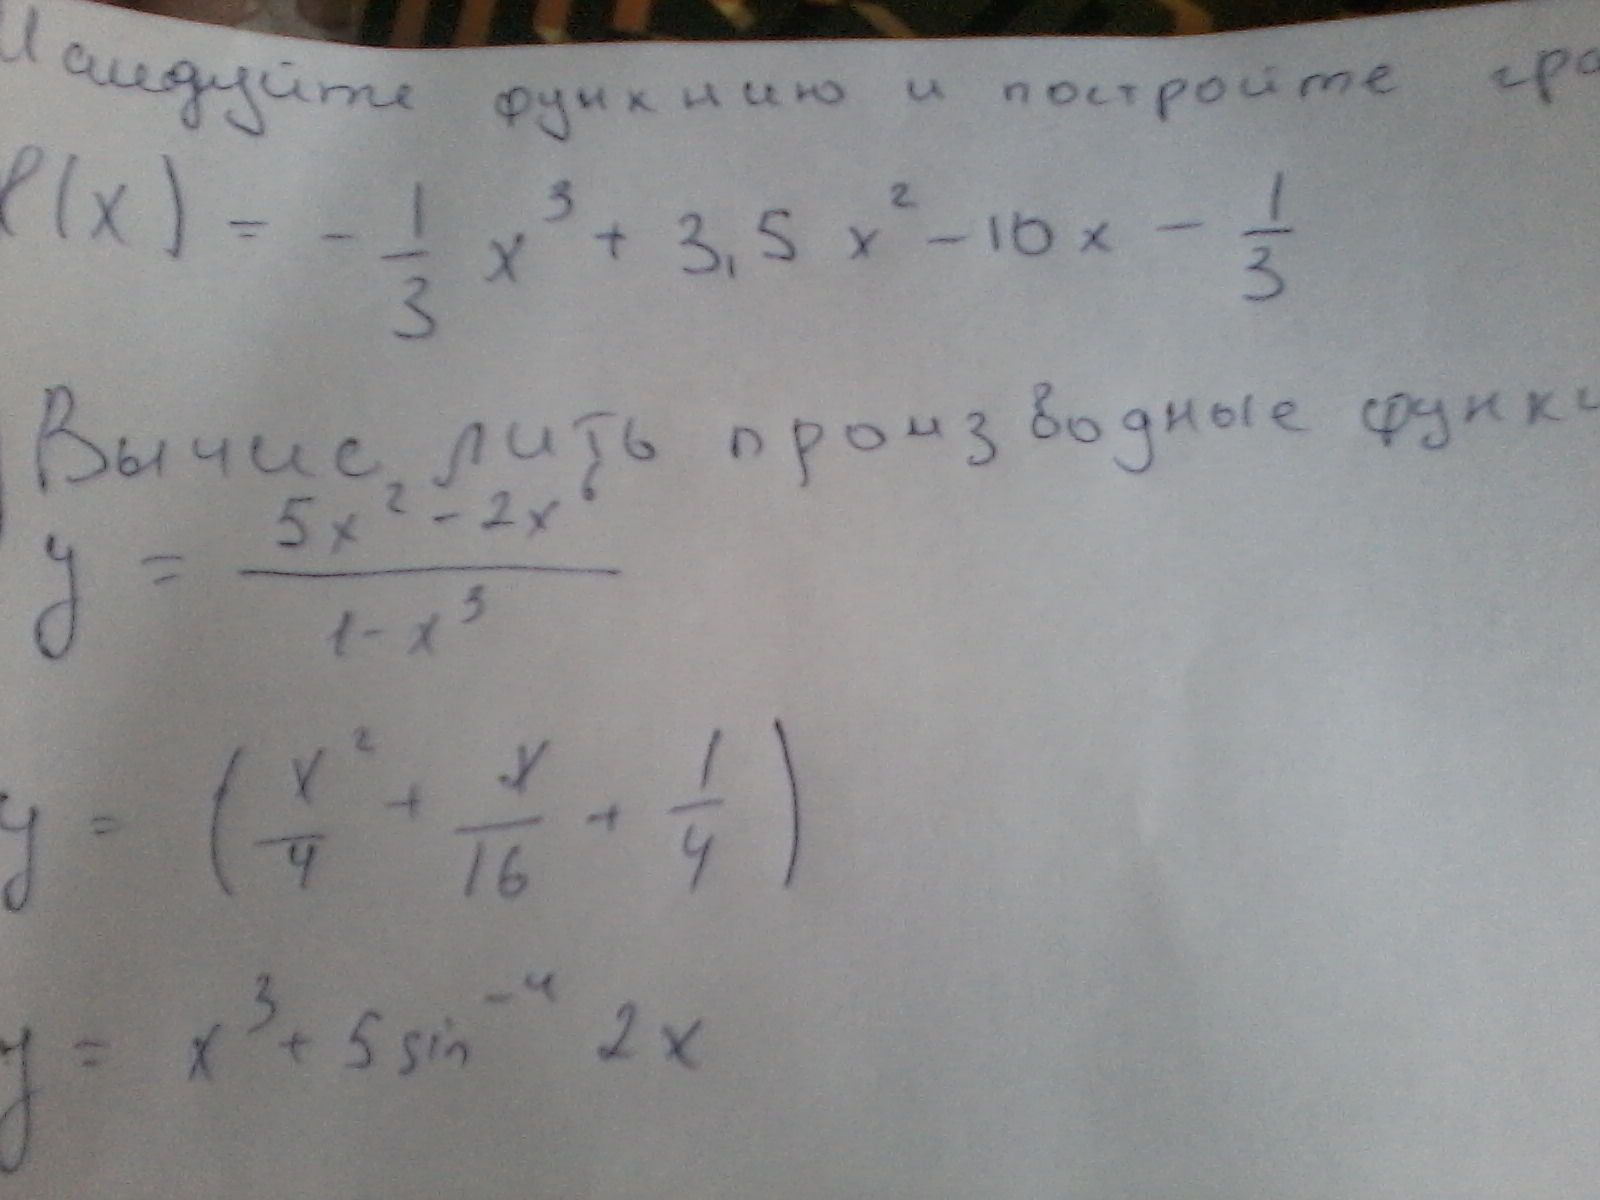 Исследуйте функцию и постройте гра
f(x) = - 1/3 x³ + 3,5 x² - 10x - 1/3
Вычислить производные функци
y = (5x² - 2x⁶)/(1 - x³)
y = (x²/4 + x/16 + 1/4)
y = x³ + 5 sin⁻⁴ 2x